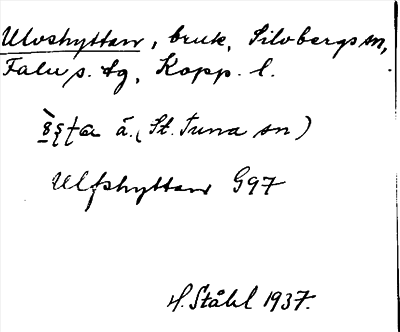 Ulvshyttan, bruk, Silvbergs sn,
Falu s. tg, Kopp. l.
å. (St. Tuna sn)
Ulfshyttan G97
H. Ståhl 1937.